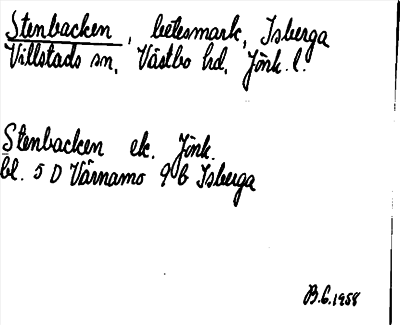 Stenbacken, betesmark, Isberga
Villstads sn, Västbo hd. Jönk. l.
Stenbacken ek. Jönk.
bl. 5 D Värnamo 9 b Isberga
B.G. 1958